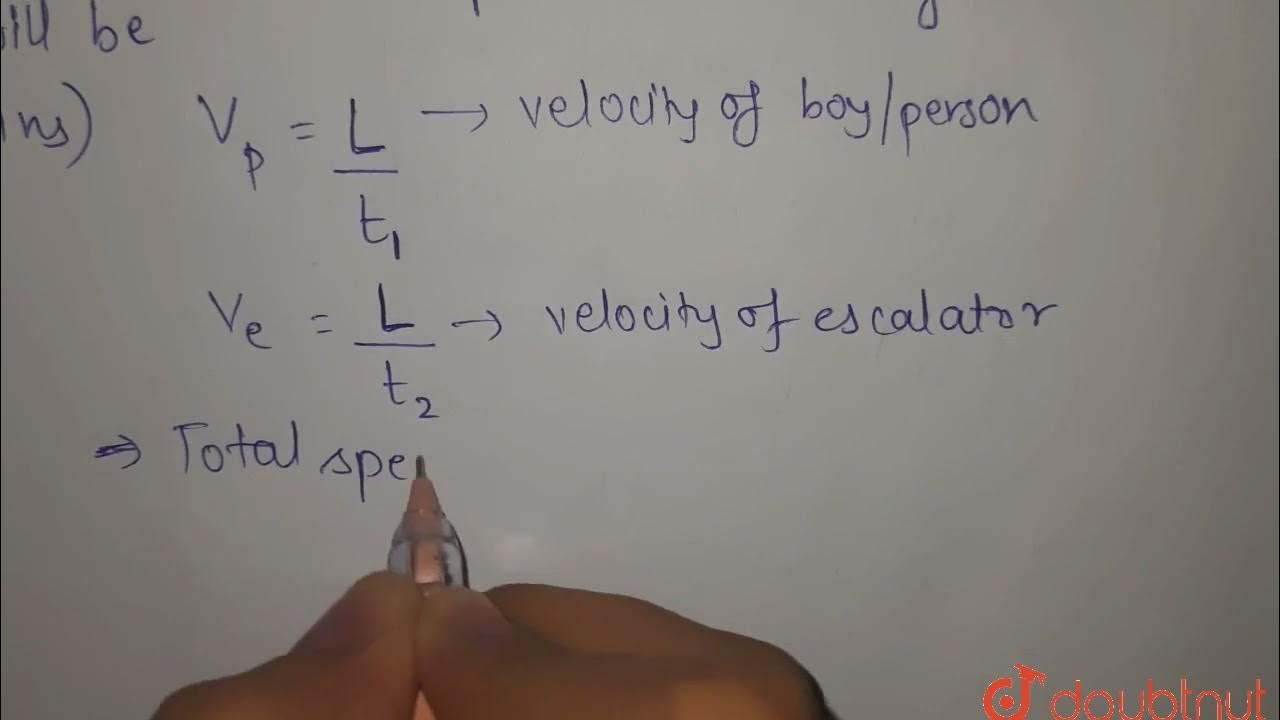 will be
Ans) Vp = L → velocity of boy/person
t1
Ve = L → velocity of escalator
t2
⇒ Total spe
doubtnut